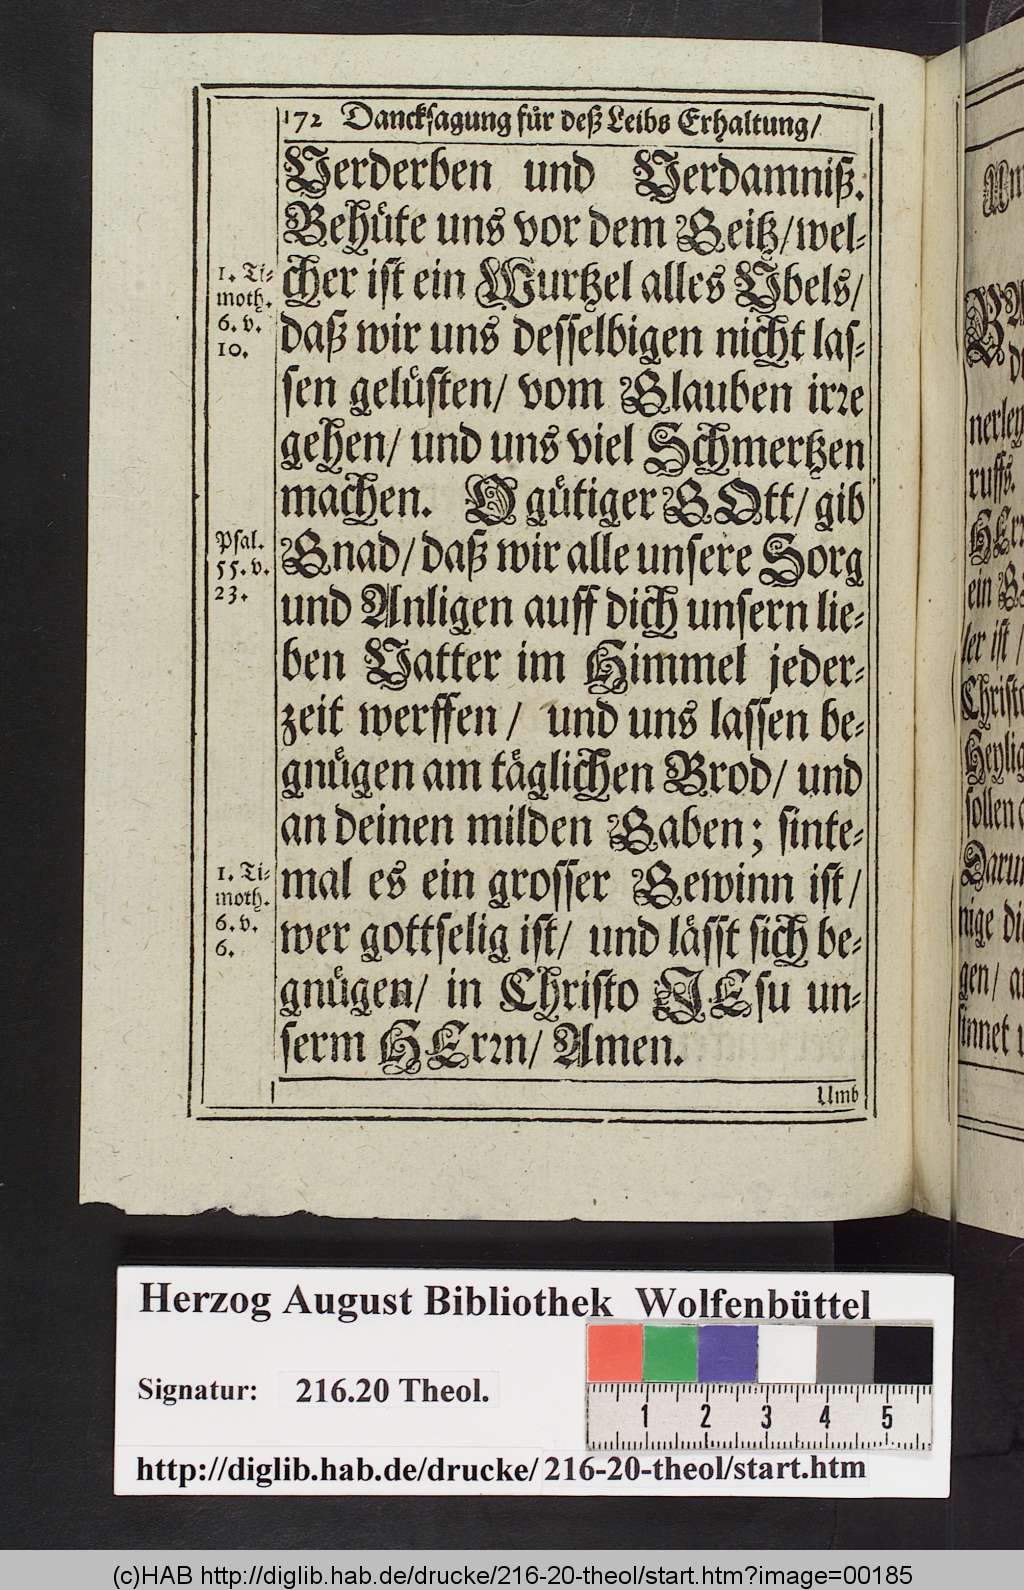 172 Dancksagung für deß Leibs Erhaltung/
Verderben und Verdamniß.
Behüte uns vor dem Geitz/ wel-
cher ist ein Wurtzel alles Übels/
daß wir uns desselbigen nicht las-
sen gelüsten/ vom Glauben irre
gehen/ und uns viel Schmertzen
machen. O gütiger GOtt/ gib
Gnad/ daß wir alle unsere Sorg
und Anligen auff dich unsern lie-
ben Vatter im Himmel jeder-
zeit werffen/ und uns lassen be-
gnügen am täglichen Brod/ und
an deinen milden Gaben; sinte-
mal es ein grosser Gewinn ist/
wer gottselig ist/ und lässt sich be-
gnügen/ in Christo JEsu un-
serm HErrn/ Amen.
Umb
1. Ti-
moth.
6. v.
10.
Psal.
55. v.
23.
1. Ti-
moth.
6. v.
6.
nerley
ruffs.
HErr
ein
ler ist /
Christo
Heylig
sollen
Darum
nige die
gen/ a
sinnet
Herzog August Bibliothek Wolfenbüttel
Signatur: 216.20 Theol.
1 2 3 4 5
http://diglib.hab.de/drucke/216-20-theol/start.htm
(c)HAB http://diglib.hab.de/drucke/216-20-theol/start.htm?image=00185